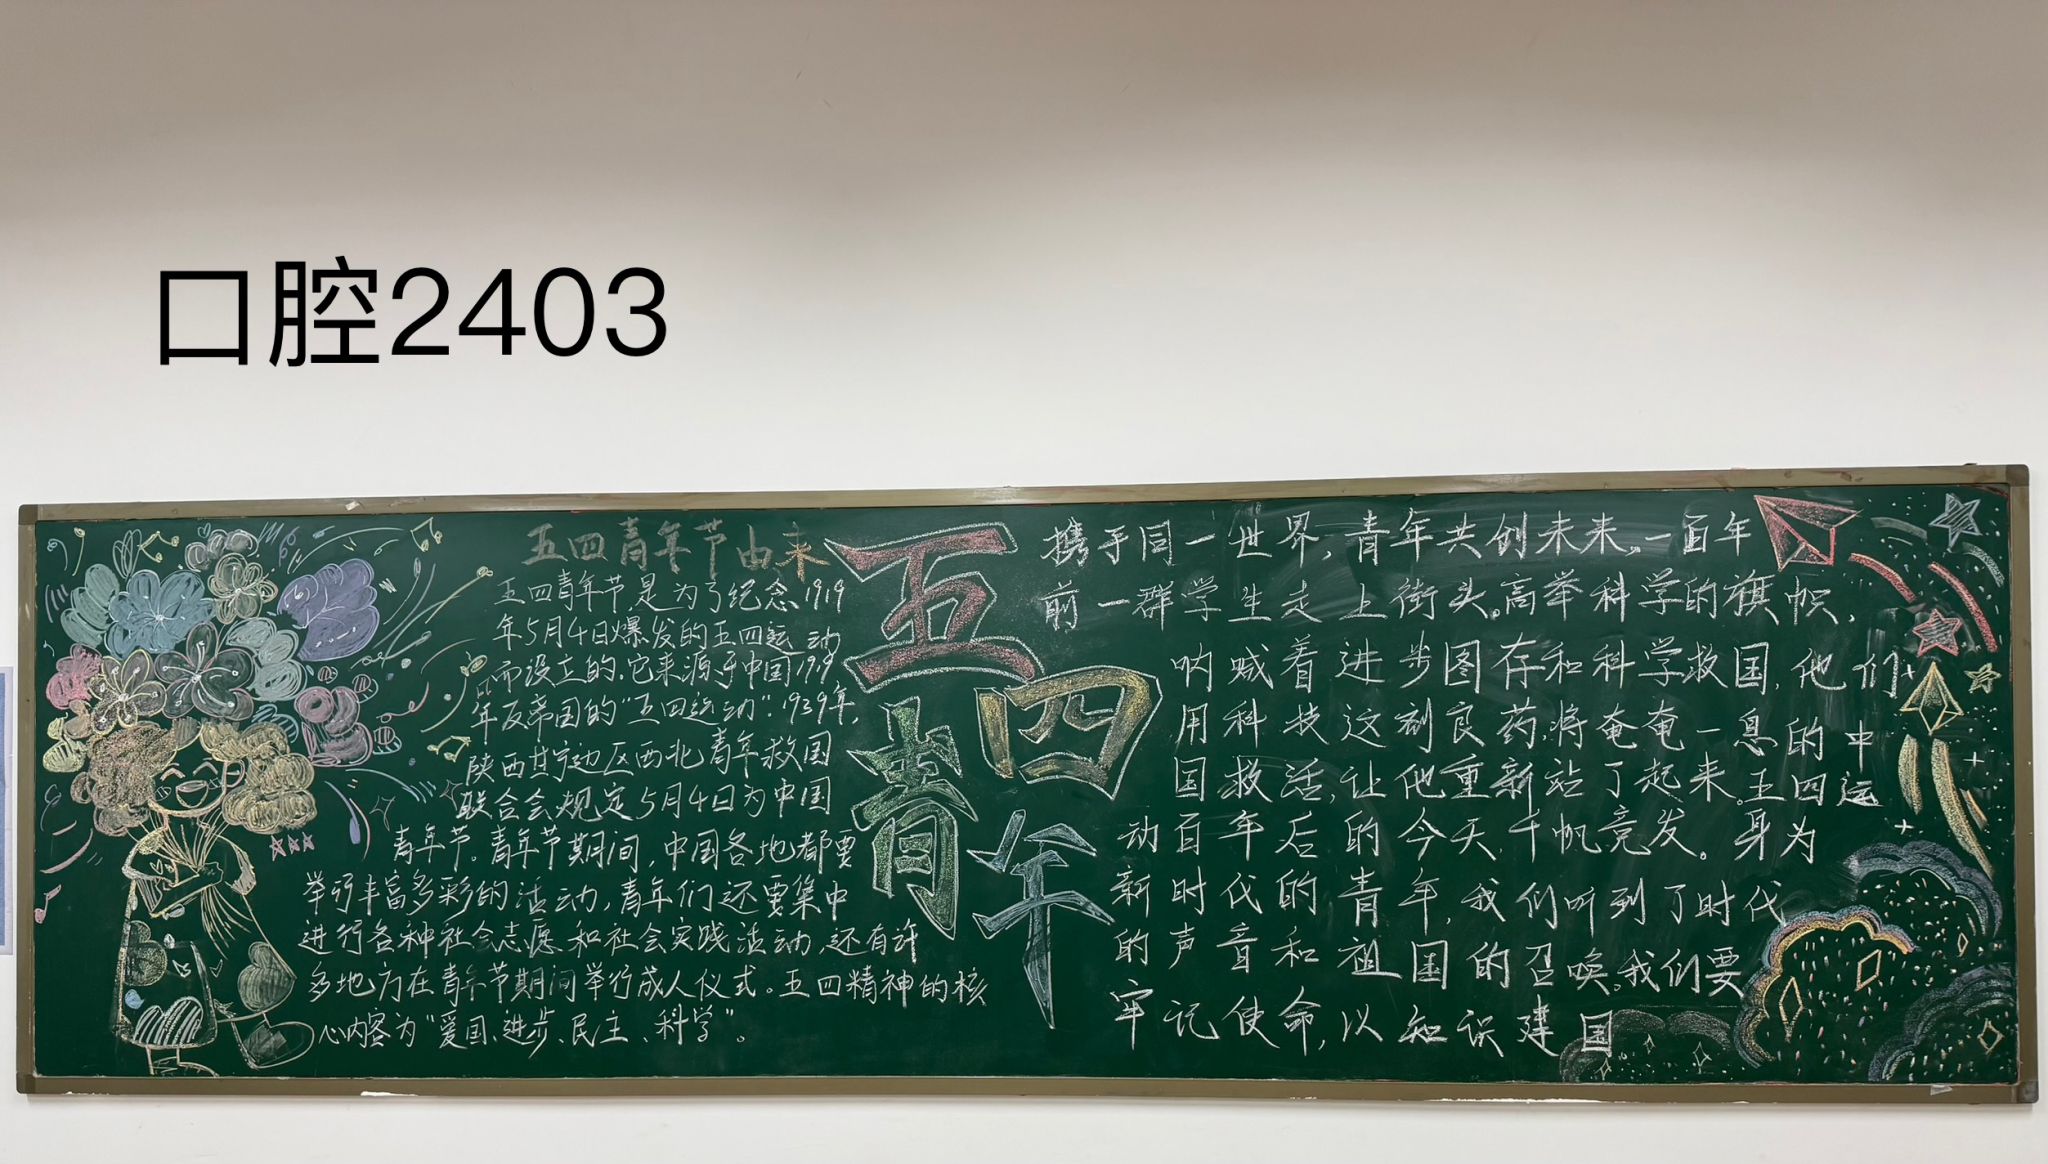 口腔2403
五四青年节由来
五四青年节,是为了纪念1919
年5月4日爆发的五四运动
而设立的.它来源于中国1919
年反帝国的"五四运动".1939年,
陕西甘宁边区西北青年救国
联合会规定5月4日为中国
青年节。青年节期间,中国各地都要
举行丰富多彩的活动,青年们还要集中
进行各种社会志愿和社会实践活动,还有许
多地方在青年节期间举行成人仪式。五四精神的核
心内容为"爱国、进步、民主、科学"。
五四
青年
携手同一世界,青年共创未来。一百年
前一群学生走上街头。高举科学的旗帜,
呐喊着进步图存和科学救国,他们
用科技这剂良药,将奄奄一息的中
国救活,让他重新站了起来。五四运
动百年后的今天,千帆竞发。身为
新时代的青年,我们听到了时代
的声音和祖国的召唤。我们要
牢记使命,以知识建国